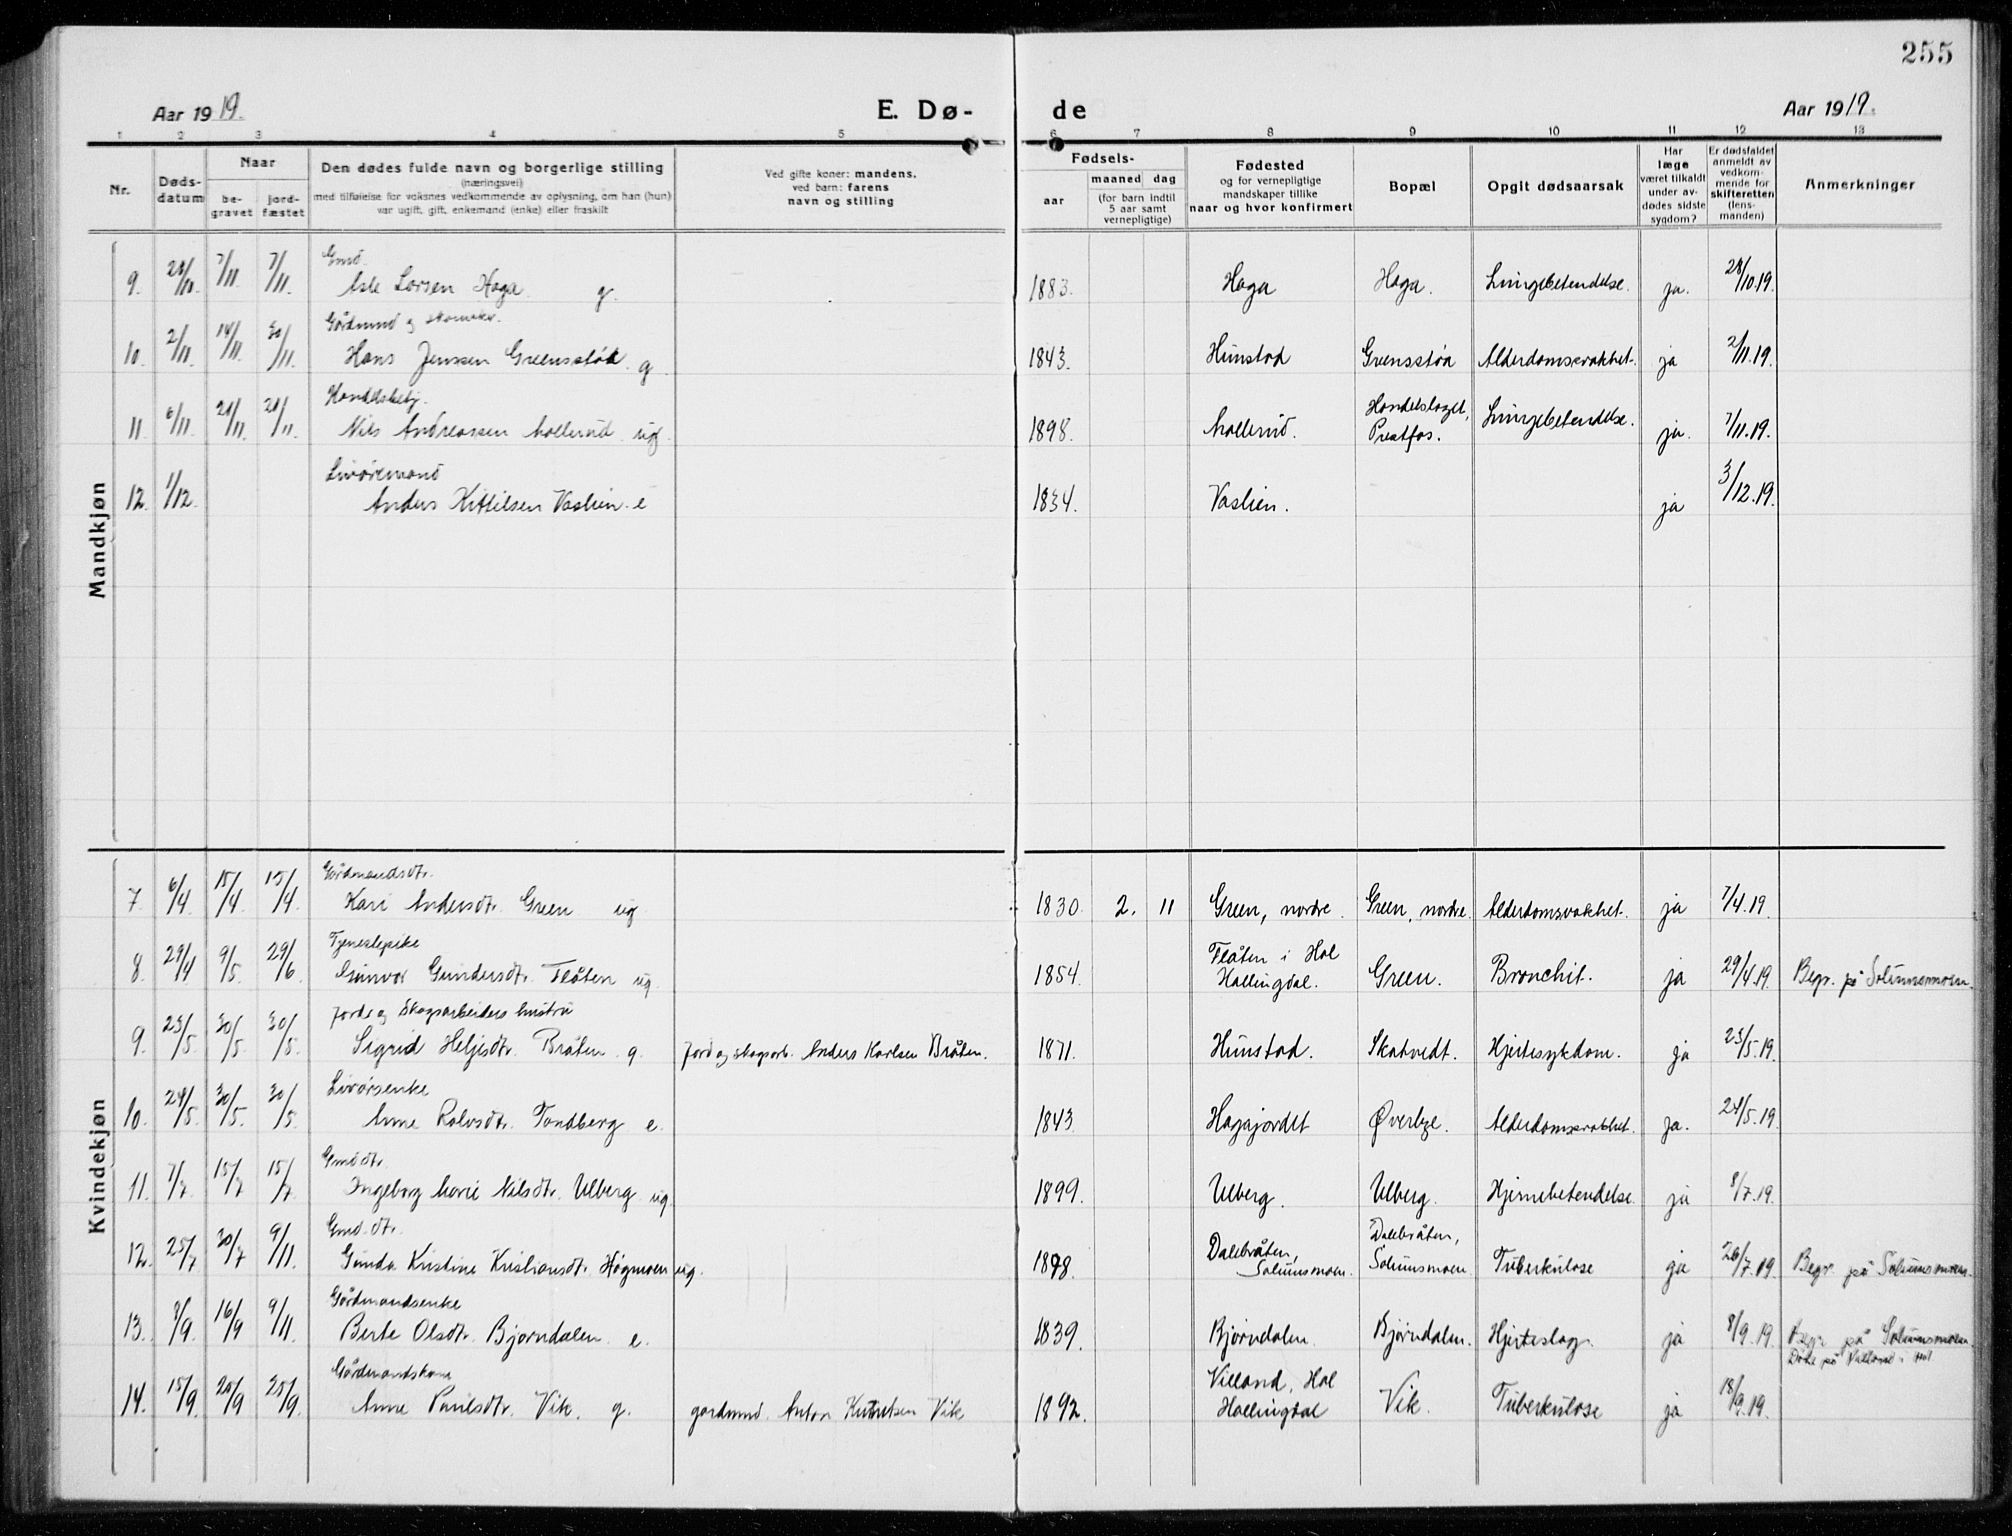 255
Aar 1919.
E. Dø-
de
Aar 1919.
1 2 3 4 5 6 7 8 9 10 11 12 13
Nr.
Døds-
datum
Naar
be-
gravet
jord-
fæstet
Den dødes fulde navn og borgerlige stilling
(næringsvei)
med tilføielse for voksnes vedkommende av oplysning, om han (hun)
var ugift, gift, enkemand (enke) eller fraskilt
Ved gifte koner: mandens,
ved barn: farens
navn og stilling
Fødsels-
aar
maaned dag
(for barn indtil
5 aar samt
vernepligtige)
Fødested
og for vernepligtige
mandskaper tillike
naar og hvor konfirmert
Bopæl
Opgit dødsaarsak
Har
læge
været tilkaldt
under av-
dødes sidste
sygdom?
Er dødsfaldet
anmeldt av
vedkom-
mende for
skifteretten
(lens-
manden)
Anmerkninger
Mandkjøn
Gmd.
9. 28/10. 7/11. 7/11. Asle Larsen Haga. g. 1883. Haga Haga. Lungebetendelse. ja. 28/10.19.
Gårdmand og skomaker.
10. 2/11. 14/11 30/11. Hans Jenssen Greensstøa. g 1843. Hunstad Greensstøa Alderdomssvakhet. ja 2/11.19.
Handelsbetj.
11. 6/11. 21/11. 21/11. Nils Andreassen Mollerud ug. 1898. Mollerud. Handelslaget, Prestfos. Lungebetendelse. ja. 7/11.19.
Livøremand
12. 1/12. Anders Kittilsen Vaslien. e 1834. Vaslien. ja 3/12.19.
Kvindekjøn
Gårdmandsdtr.
7. 6/4. 15/4. 15/4. Kari Andersdtr. Green ug. 1830. 2. 11 Green, nordre. Green, nordre. Alderdomssvakhet. ja 7/4.19.
Tjenestepike
8. 29/4 9/5. 29/6 Gunvor Gundersdtr. Flåten ug. 1854. Flåten i Hol Hallingdal. Green. Bronchit. ja 29/4.19. Begr. på Solumsmoen.
Jord og Skogsarbeiders hustru
9. 23/5. 30/5. 30/5. Sigrid Heljesdtr. Bråten g. Jord og skogsarb. Anders Karlsen Bråten. 1871. Hunstad. Skatvedt. Hjertesykdom. ja 23/5.19.
Livørsenke
10. 24/5. 30/5. 30/5. Anne Rolvsdtr. Tandberg e. 1843. Hagajordet Øverbye. Alderdomssvakhet. ja. 24/5.19.
Gmddtr.
11. 7/7. 15/7 15/7. Ingeborg Marie Nilsdtr. Ulberg ug. 1899. Ulberg. Ulberg. Hjernebetendelse. ja 8/7.19.
Gmd.dtr.
12. 25/7 30/7 9/11. Gunda Kristine Kristiansdtr. Høgmoen ug. 1898. Dalebråten, Solumsmoen. Dalebråten, Solumsmoen. Tuberkulose ja 26/7.19. Begr. på Solumsmoen.
Gårdmandsenke
13. 8/9. 16/9 9/11. Berte Olsdtr. Bjørndalen e. 1839. Bjørndalen. Bjørndalen. Hjerteslag. ja 8/9.19. Begr. på Solumsmoen
Gårdmandskone
14. 15/9. 25/9 25/9. Anne Paulsdtr. Vik. g. gardmd. Anton Knutsen Vik 1892. Villand, Hol Hallingdal Vik. Tuberkulose ja 18/9.19. Døde på Villand i Hol